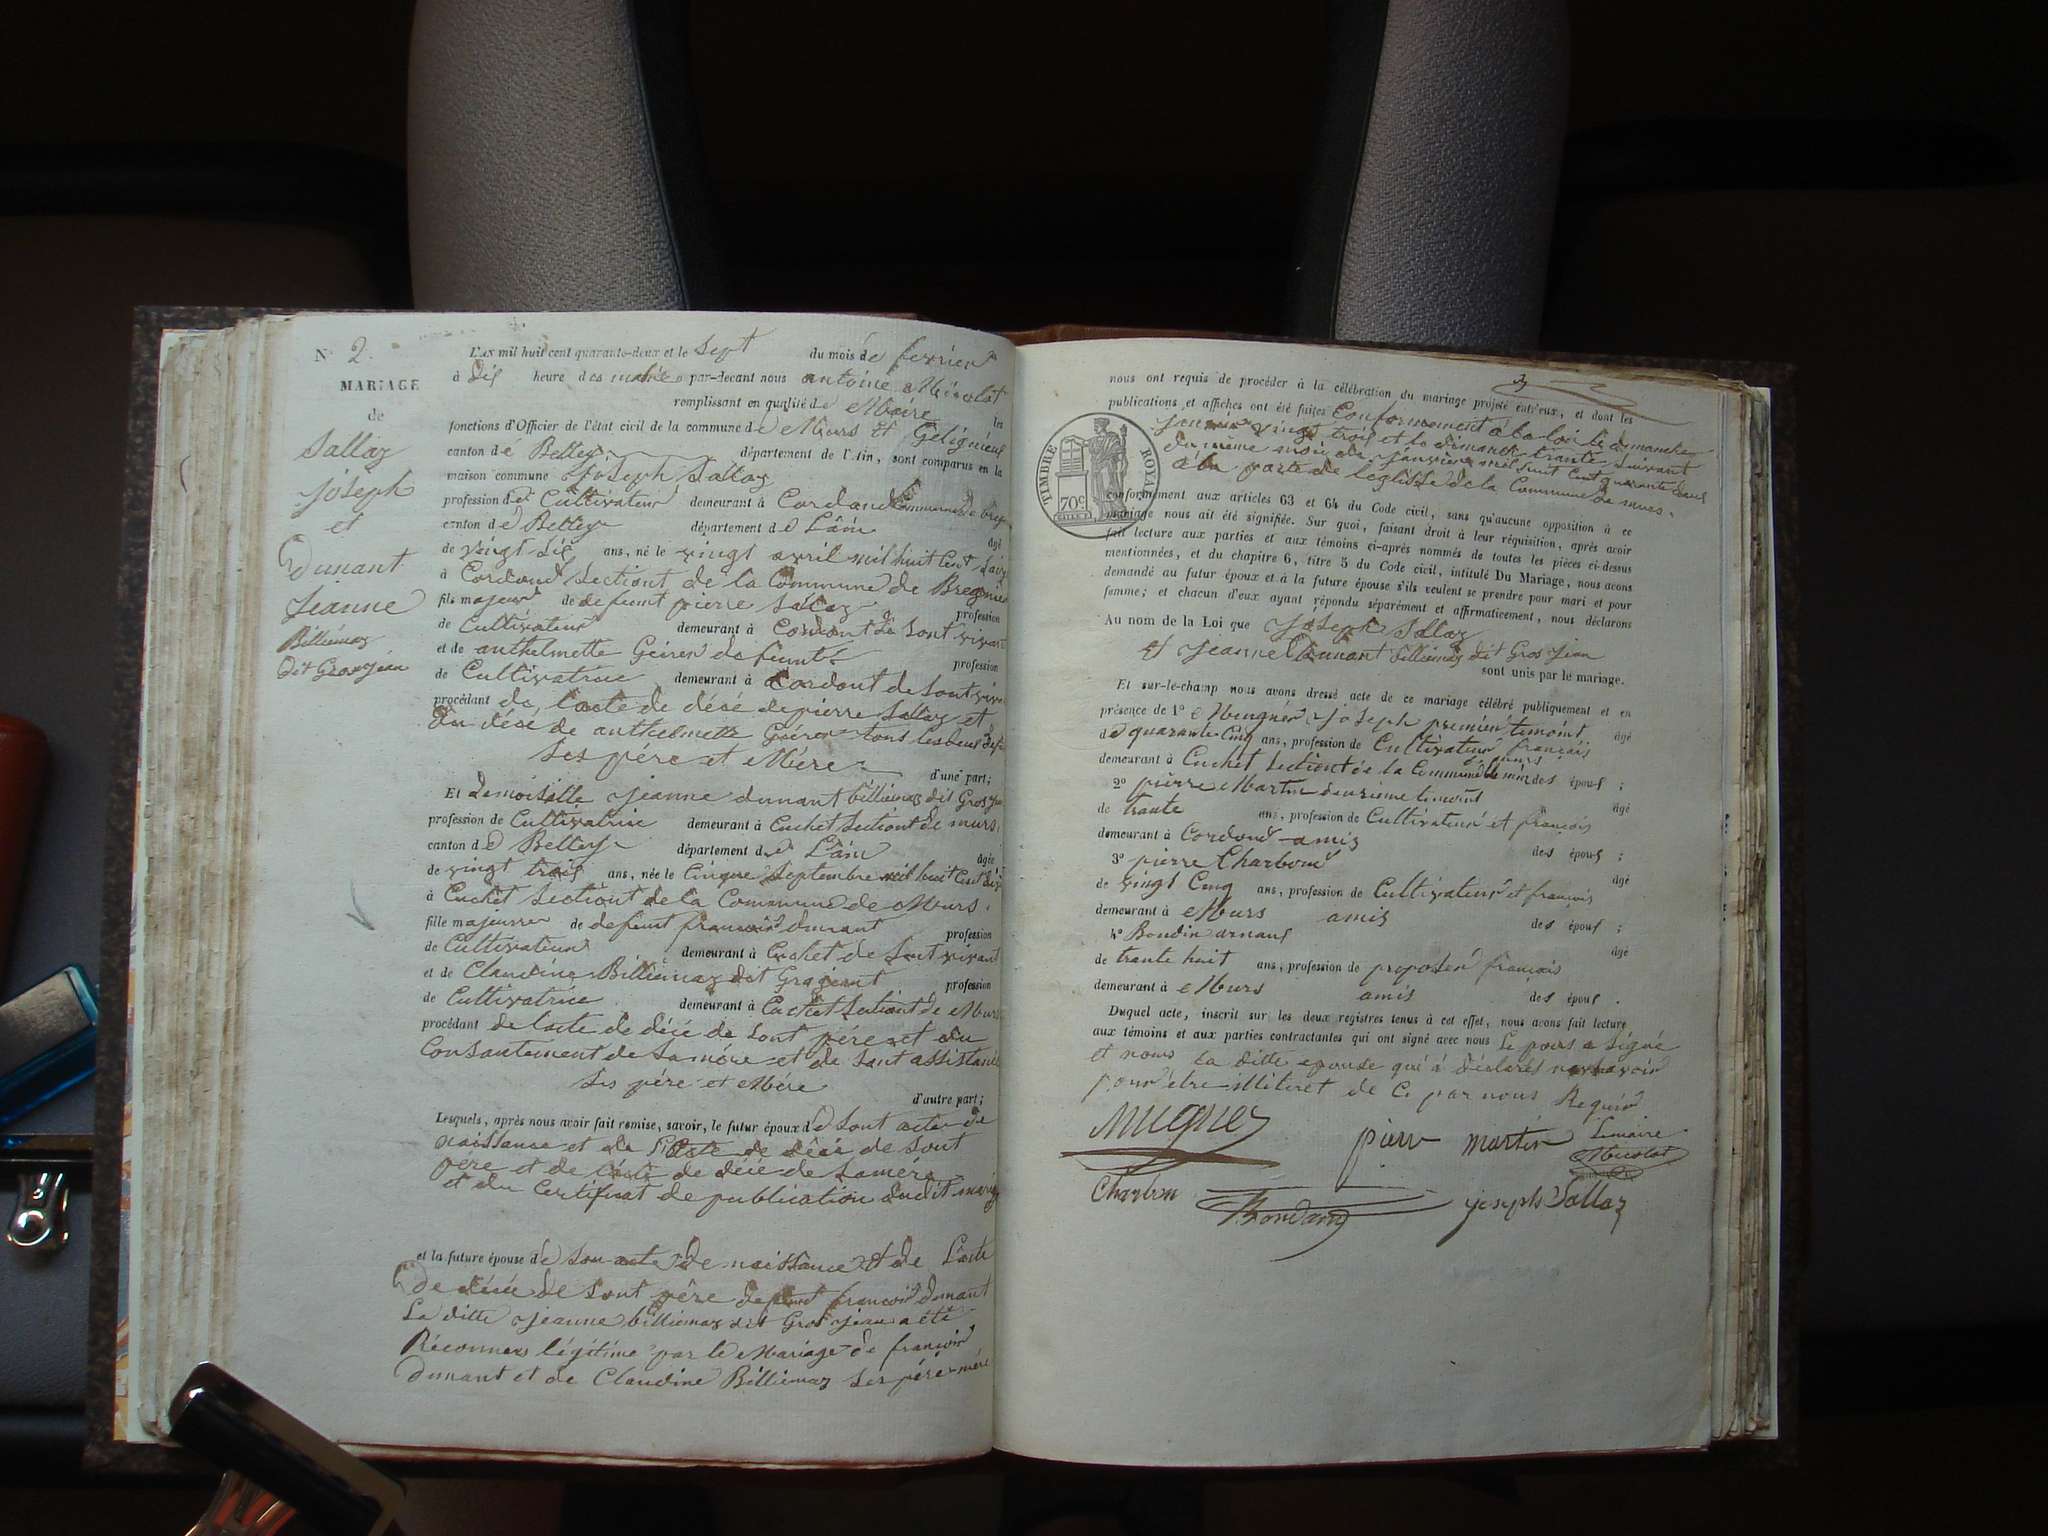 N° 2.
MARIAGE
de
Sallaz
Joseph
et
Dunant
Jeanne
Billiemaz
dit Grosjean
L'AN mil huit cent quarante-deux et le Sept du mois de fevrier
à dis heure des matin par-devant nous antoine Micolot
remplissant en qualité de Maire les
fonctions d'Officier de l'état civil de la commune de Murs et Gélignieux
canton de Belley département de l'Ain, sont comparus en la
maison commune Joseph Sallaz
profession de Cultivateur demeurant à Cordond Commune de breg
canton de Belley département de L'ain âgé
de vingt sis ans, né le vingt avril mil huit Cent
à Cordond Sectiont de la Commune de Bregnier
fils majeur de defeunt pierre Sallaz profession
de Cultivateur demeurant à Cordont de Sont vivant
et de anthelmette Goirer defeunte profession
de Cultivatrice demeurant à Cordont de Sont viva
procédant de l'acte de décé de pierre Sallaz et
du décé de anthelmette Goirer tous les deux
Ses père et Mère d'une part;
Et demoiselle Jeanne dunant billiemaz dit Gros
profession de Cultivatrice demeurant à Cuchet Sectiont de murs.
canton de Belley département de L'ain âgée
de vingt trois ans, née le Cinque Septembre mil huit Cent dix
à Cuchet Sectiont de la Commune de Murs.
fille majeure de defeunt francois dunant profession
de Cultivateur demeurant à Cuchet de Sont vivant
et de Claudine Billiemaz dit Grosjeant profession
de Cultivatrice demeurant à Cuchet Sectiont de Murs
procédant de lacte de décé de Sont père et du
Consantement de Samère et de Sont assistance
Ses père et Mère
d'autre part;
Lesquels, après nous avoir fait remise, savoir, le futur époux de Sont acte de
naissance et de l'acte de décé de Sont
père et de l'acte de décé de Samère
et du Certificat de publication dudit mariage
et la future épouse de Son acte de naissance et de L'acte
de décée de Sont père defeunt francois dunant
La ditte Jeanne billiemaz dit Gros Jean a été
Réconnus légitime par le Mariage de francois
Dunant et de Claudine Billiemaz Ses père mère
nous ont requis de procéder à la célébration du mariage projeté entr'eux, et dont les
publications et affiches ont été faites Conformement à la loi le dimanche
Janvier vingt trois et le dimanche trante Suivant
du même mois de Janvier mil huit Cent quarante deux
à la porte de leglisse de la Commune de murs.
TIMBRE ROYAL
70c
conformément aux articles 63 et 64 du Code civil, sans qu'aucune opposition à ce
mariage nous ait été signifiée. Sur quoi, faisant droit à leur réquisition, après avoir
fait lecture aux parties et aux témoins ci-après nommés de toutes les pièces ci-dessus
mentionnées, et du chapitre 6, titre 5 du Code civil, intitulé Du Mariage, nous avons
demandé au futur époux et à la future épouse s'ils veulent se prendre pour mari et pour
femme; et chacun d'eux ayant répondu séparément et affirmativement, nous déclarons
Au nom de la Loi que Joseph Sallaz
et Jeanne Dunant billiemaz dit Gros Jean
sont unis par le mariage.
Et sur-le-champ nous avons dressé acte de ce mariage célébré publiquement et en
présence de 1° Mugnier Joseph premier temoint âgé
de quarante Cinq ans, profession de Cultivateur français
demeurant à Cuchet Sectiont de la Commune de murs des époux ;
2° pierre Martin deuxieme temoint âgé
de trante ans, profession de Cultivateur et français
demeurant à Cordond amis des époux ;
3° pierre Charbon âgé
de vingt Cinq ans, profession de Cultivateur et français
demeurant à Murs amis des époux ;
4° Bondin arnaus âgé
de trante huit ans, profession de proposer français
demeurant à Murs amis des époux .
Duquel acte, inscrit sur les deux registres tenus à cet effet, nous avons fait lecture
aux témoins et aux parties contractantes qui ont signé avec nous Le pous a Signé
et nous La ditte epouse qui à déclarés
pour être illiteret de Ce par nous Requis
Mugnier
pierr martin
Lemaire
Micolot
Charbon
joseph Sallaz